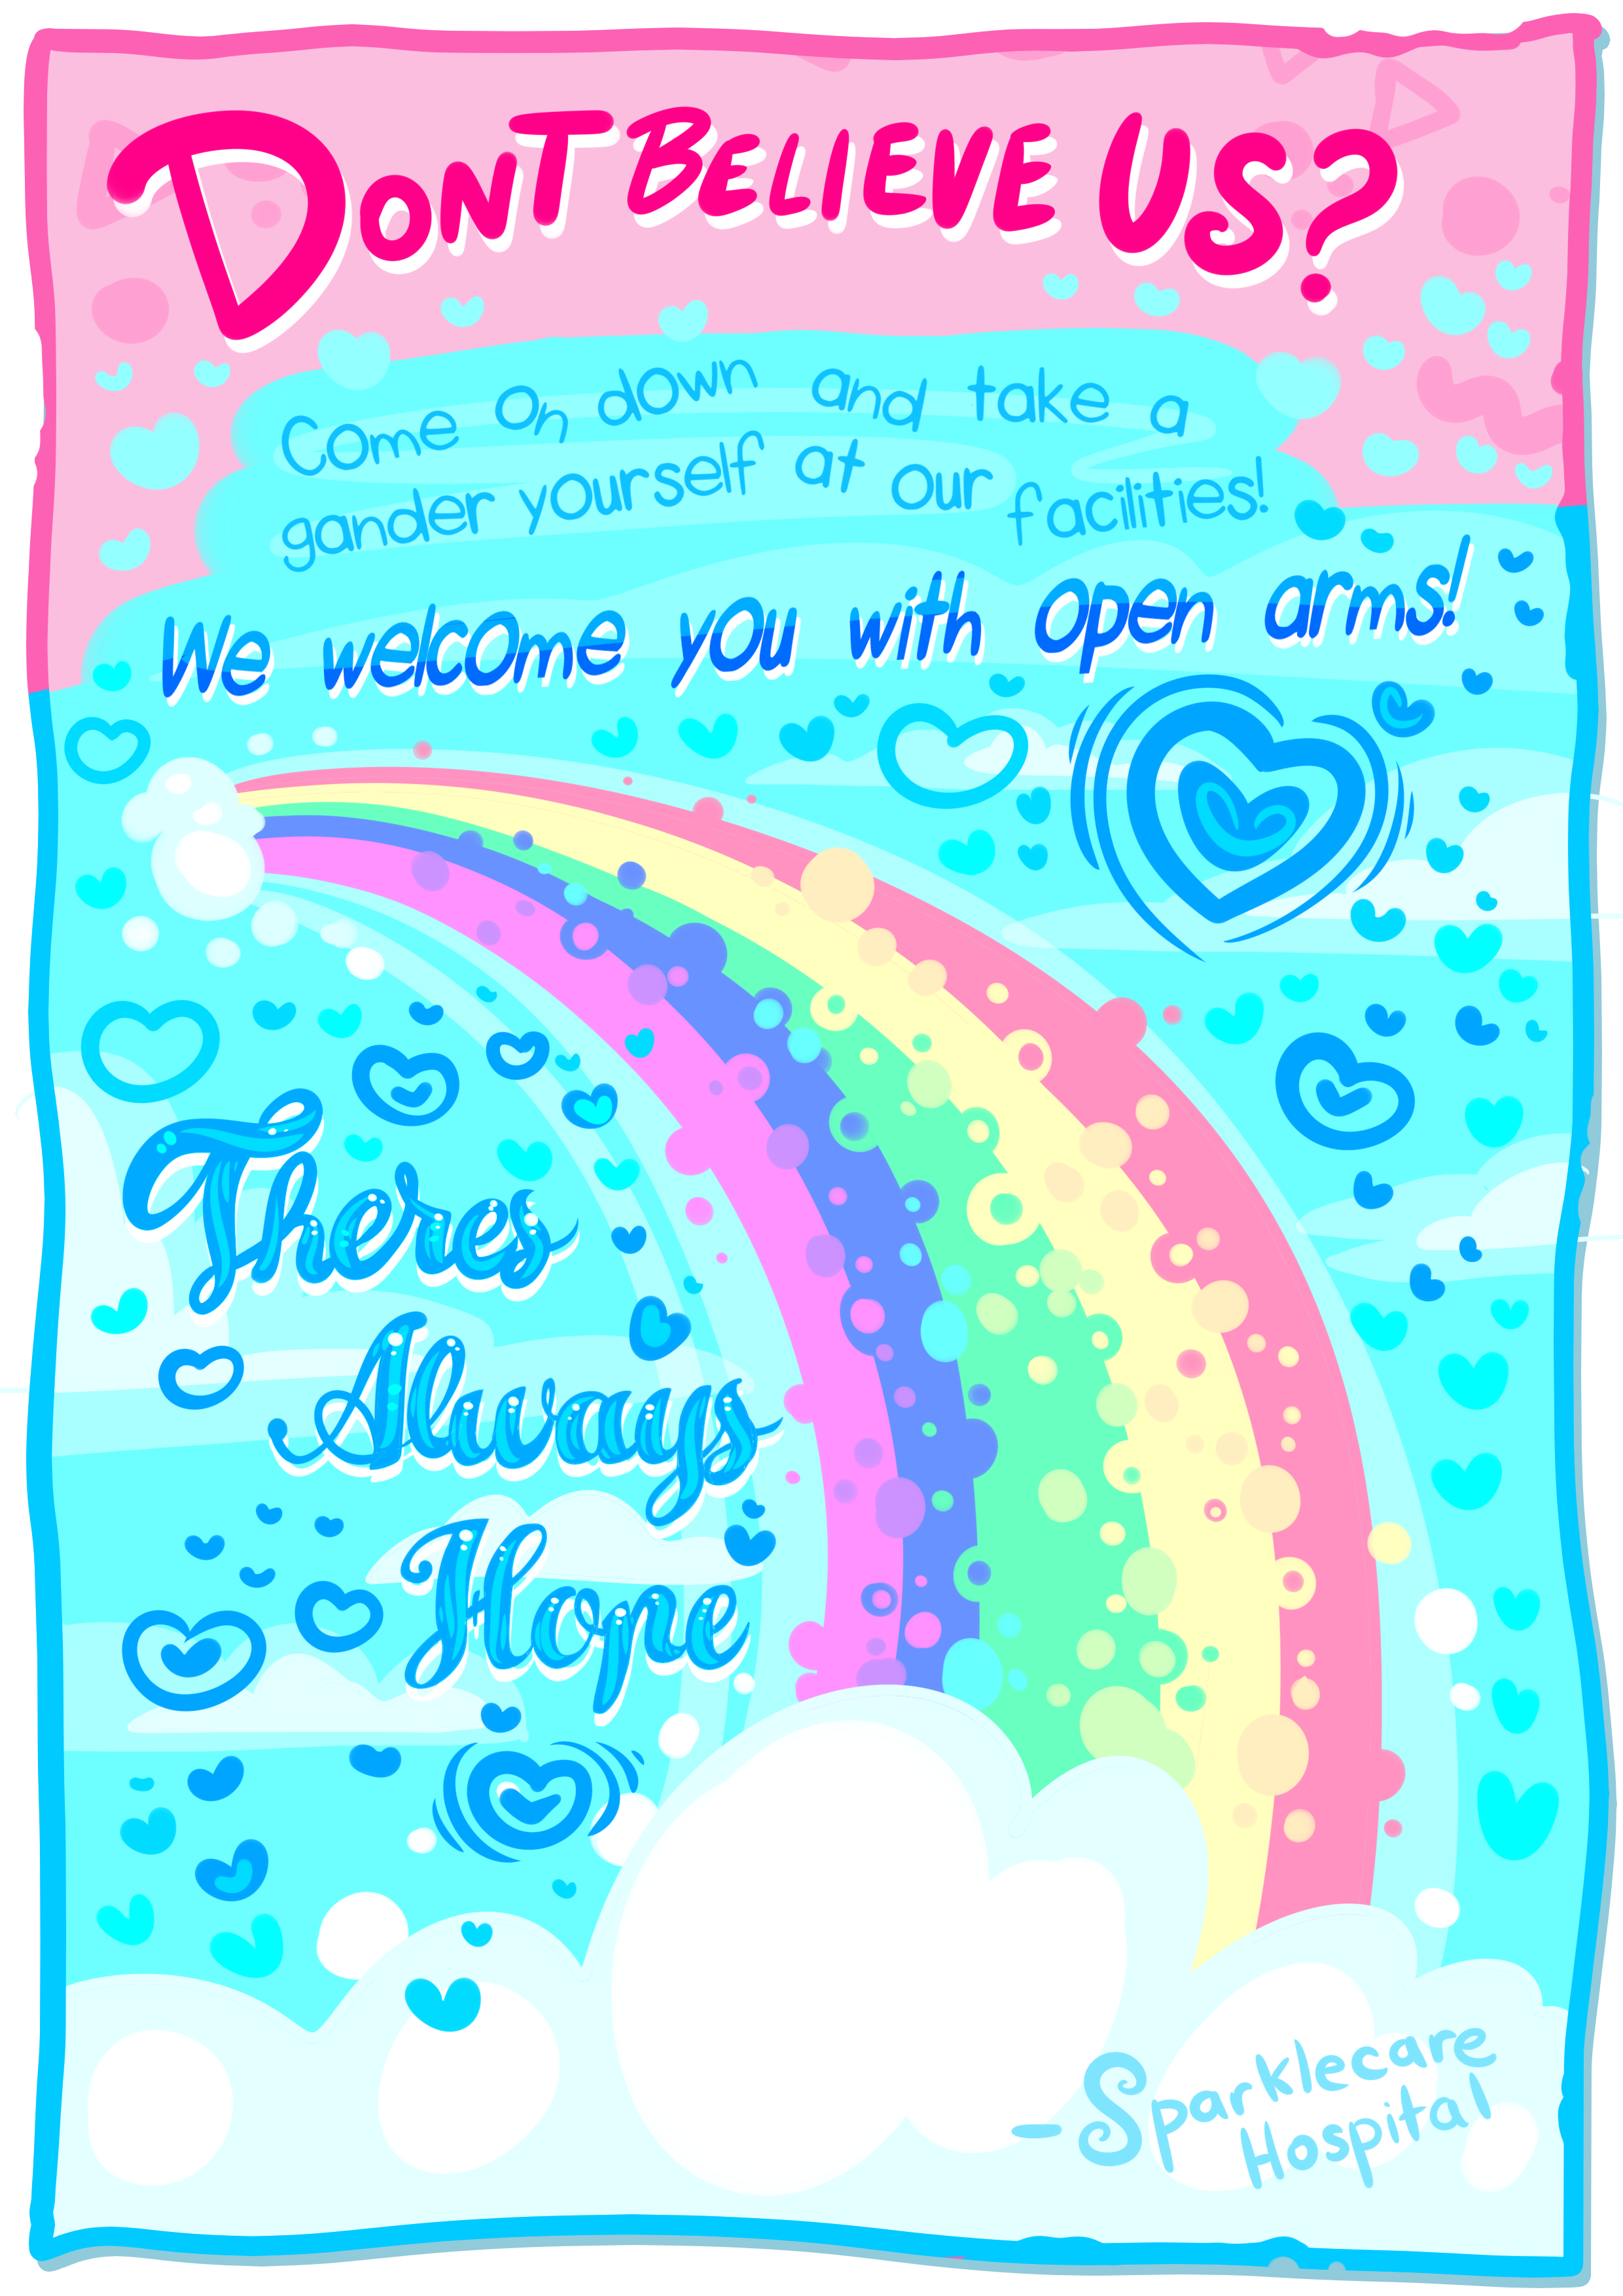 DONT BELIEVE US?
Come on down and take a
gander yourself at our facilities!
We welcome you with open arms!
Theres
Always
Hope
-Sparklecare
Hospital